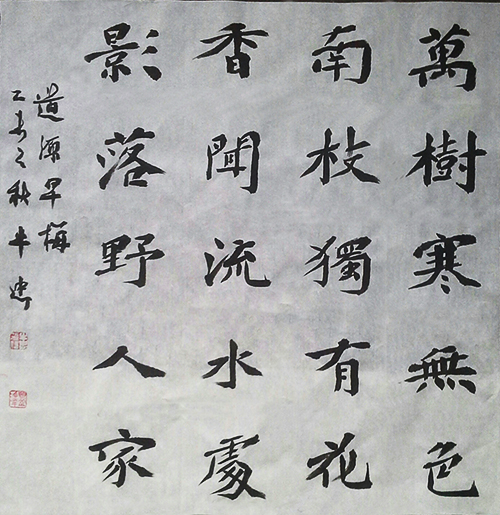 萬樹寒無色
南枝獨有花
香聞流水處
影落野人家
道源早梅
乙未之秋牛